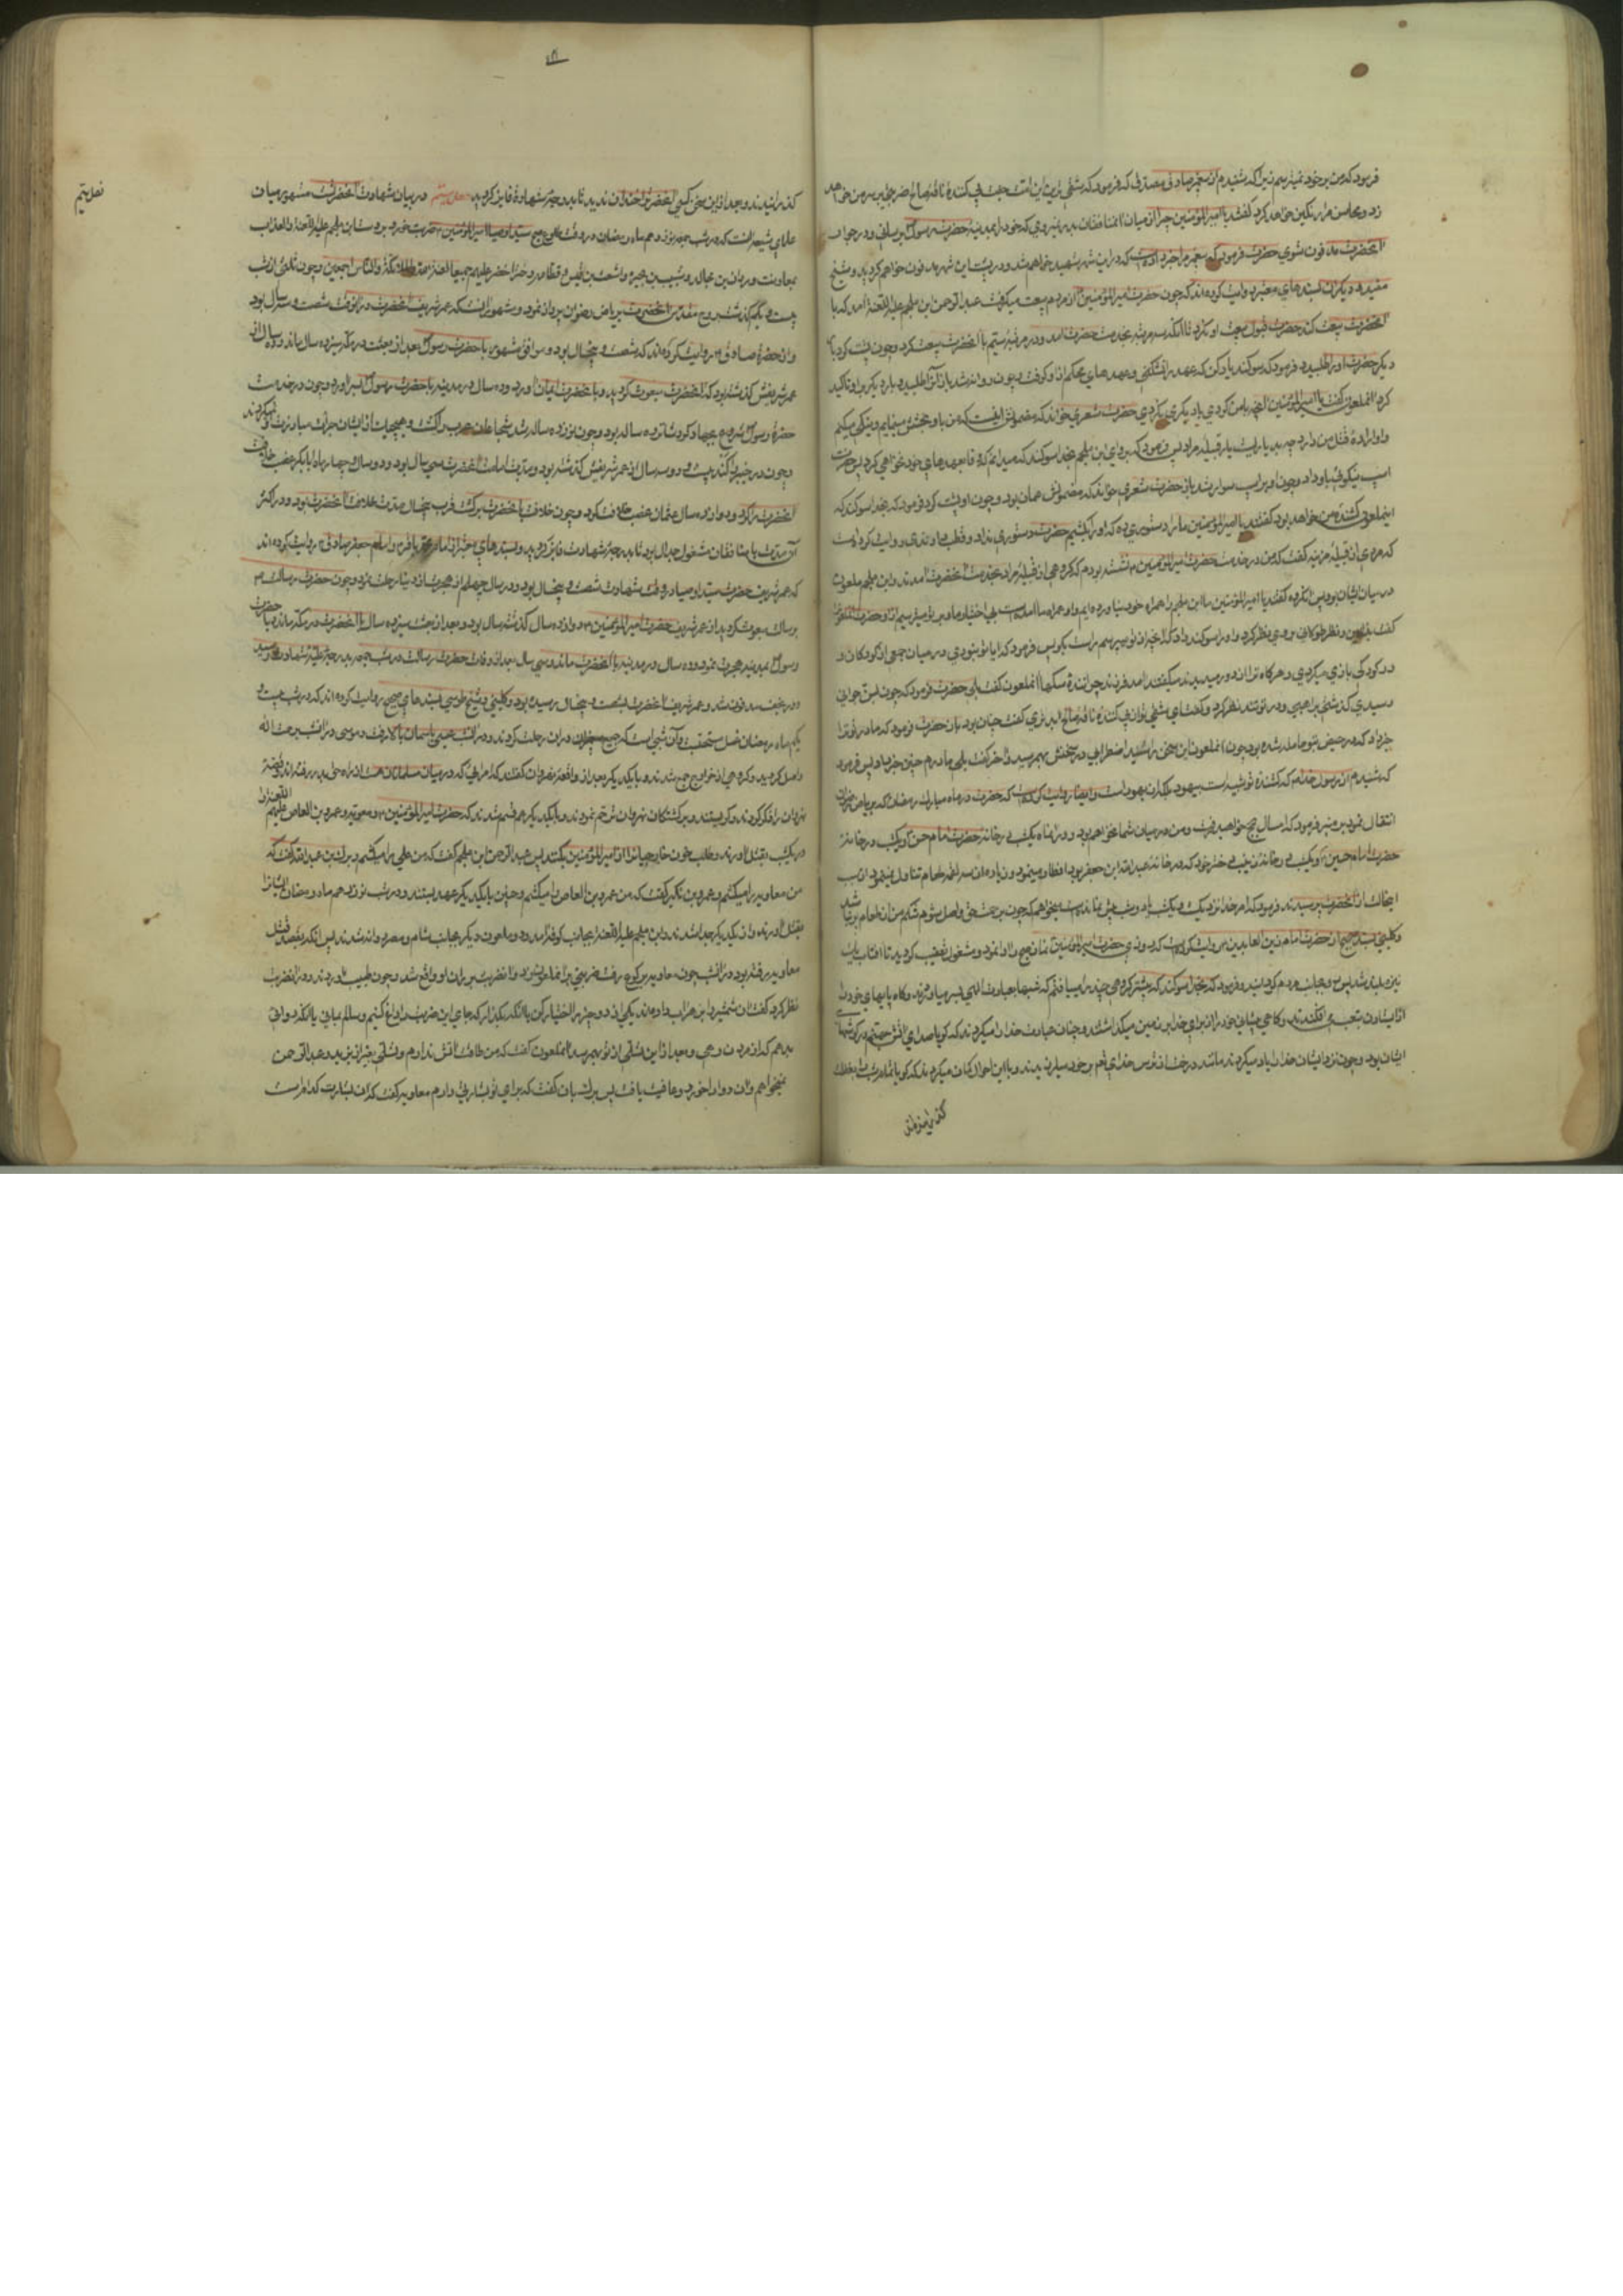 فرمود که من بر خود نمیترسم زیرا که شنیدم از مخبر صادق مصدق که فرمود که شقی ترین این امت جفت پی کنندهٔ ناقه صالح ضربتی بر سر من خواهد
زد و محاسن مرا رنگین خواهد کرد گفتند یا امیرالمؤمنین چرا از میان این منافقان بدر نمیروی که خود را بمدینه حضرت رسول برسانی و در جوار
آنحضرت مدفون شوی حضرت فرمود که مخبر مرا خبر داده است که در این شهر شهید خواهم شد و در پشت این شهر مدفون خواهم گردید و شیخ
مفید و دیگران بسندهای معتبر روایت کرده‌اند که چون حضرت امیرالمؤمنین از مردم بیعت میگرفت عبدالرحمن ابن ملجم علیه اللعنه آمد که با
آنحضرت بیعت کند حضرت قبول بیعت او نکرد تا آنکه سه مرتبه بخدمت حضرت آمد و در مرتبه سیم با آنحضرت بیعت کرد و چون پشت کرد بار
دیگر حضرت او را طلبید و فرمود که سوگند یاد کن که عهد را نشکنی و عهدهای محکم از او گرفت و چون روانه شد باز آنرا طلبید و بار دیگر بر او تاکید
کرد آنملعون گفت یا امیرالمؤمنین آنچه با من کردی با دیگری نکردی حضرت شعری خواند که مضمونش اینست که من با او بخشش مینمایم و نیکی میکنم
و او ارادهٔ قتل من دارد
اسب نیکوئی باو داد و چون او بر اسب سوار شد باز حضرت شعری خواند که مضمونش همان بود و چون او پشت کرد فرمود که بخدا سوگند که
اینملعون کشندهٔ من خواهد بود گفتند یا امیرالمؤمنین ما را دستوری ده که او را بکشیم حضرت دستوری نداد و قطب راوندی روایت کرده است
که مردی از قبیلهٔ مزینه گفت که من در خدمت حضرت امیرالمؤمنین نشسته بودم که گروهی از قبیلهٔ مراد بخدمت آنحضرت آمدند و ابن ملجم ملعون
در میان ایشان بود پس آنگروه گفتند یا امیرالمؤمنین ما ابن ملجم را همراه خود نیاورده‌ایم و او همراه ما آمده است بی اختیار ما و بر تو میترسیم از او حضرت بآنملعون
گفت بنشین و نظر طولانی بر وی نظر کرد و او را سوگند داد که آنچه از تو میپرسم راست بگو پس فرمود که آیا تو نبودی در میان جمعی از کودکان و
در کودکی بازی میکردی و هرگاه ترا از دور میدیدند میگفتند آمد فرزند چرانندهٔ سگها آنملعون گفت بلی حضرت فرمود که چون بسن جوانی
رسیدی گذشتی براهبی و در تو تند نظر کرد و گفت ای شقی تر از پی کنندهٔ ناقهٔ صالح گفت چنان بود باز حضرت فرمود که مادر تو ترا
خبر داد که در حیض بتو حامله شده بود چون آنملعون این سخن را شنید اضطرابی در سخنش بهمرسید و آخر گفت بلی مادرم چنین خبر داد پس فرمود
که شنیدم از رسول خدا که کشندهٔ تو شبیه است بیهود بلکه از یهود است و ایضا روایت کرده است که حضرت در ماه مبارک رمضان که بریاض رضوان
انتقال نمود بر منبر فرمود که امسال بحج خواهید رفت و من در میان شما نخواهم بود و در آن ماه یکشب در خانهٔ حضرت امام حسن و یکشب در خانهٔ
حضرت امام حسین و یکشب در خانهٔ زینب دختر خود که در خانهٔ عبدالله ابن جعفر بود افطار مینمود و زیاده از سه لقمه طعام تناول نمینمود از سبب
اینحالت از آنحضرت پرسیدند فرمود که امر خدا نزدیک شده و یکشب یا دو شب بیش نمانده است میخواهم که چون برحمت حق واصل شوم شکم من از طعام پر نباشد
و کلینی بسند صحیح از حضرت امام زین العابدین روایت کرده است که روزی حضرت امیرالمؤمنین نماز صبح را ادا نمود و مشغول تعقیب گردید تا آفتاب یک
نیزه بلند شد پس رو بجانب مردم گردانید و فرمود که بخدا سوگند که پیشتر گروهی چند را مییافتم که شبها بعبادت الهی بسر میاوردند و گاه پایهای خود را
از ایستادن بتعب می افکندند و گاهی پیشانی خود را از برای خدا بر زمین میگذاشتند و چنان عبادت خدا را میکردند که گویا صدای آتش جهنم در گوشهای
ایشان بود و چون نزد ایشان خدا را یاد میکردند مانند درختان از ترس خدای تعالی بر خود میلرزیدند و با این احوال گمان میکردند که گویا تمام شب بغفلت
گذرانیدند
۱۳۱
گذرانیدند و بعد از این سخن کسی آنحضرت را خندان ندید تا بدرجهٔ شهادة فایز گردید فصل بیستم در بیان شهادت آنحضرتست مشهور میان
علمای شیعه آنست که در شب جمعه نوزدهم ماه رمضان در وقت طلوع صبح سید اوصیا امیرالمؤمنین ضربت خورد بر دست ابن ملجم علیه اللعنه و العذاب
بمعاونت وردان بن مجالد و شبیب بن بجره و اشعث بن قیس و قطامه دختر اخضر علیهم جمیعا لعنة الله و الملائکة و الناس اجمعین و چون ثلثی از شب
بیست و یکم گذشت روح مقدس آنحضرت بریاض رضوان پرواز نمود و مشهور آنست که عمر شریف آنحضرت در آنوقت شصت و سه سال بود
و از حضرة صادق روایت کرده‌اند که شصت و پنجسال بود و موافق مشهور با حضرت رسول بعد از بعثت در مکه سیزده سال ماند و ده سال از
عمر شریفش گذشته بود که آنحضرت مبعوث گردید و با آنحضرت ایمان آورد و ده سال در مدینه با حضرت رسول بسر آورد و چون در خدمت
حضرة رسول شروع بجهاد کرد شانزده ساله بود و چون نوزده ساله شد شجاعان عرب را کشت و هیچیک از ایشان جرأت مبارزت او نمیکردند
و چون در خیبر را کند بیست و دو سه سال از عمر شریفش گذشته بود و مدت امامت آنحضرت سی سال بود و دو سال و چهار ماه ابابکر غصب خلافت
آنحضرت کرد و دوازده سال عثمان غصب خلافت کرد و چون خلافت بآنحضرت برگشت قریب پنجسال مدت خلافت آنحضرت بود و در اکثر
آن مدت با منافقان مشغول جدال بود تا بدرجهٔ شهادت فایز گردید و بسندهای معتبر از امام محمد باقر و امام جعفر صادق روایت کرده‌اند
که عمر شریف حضرت سید اوصیا در وقت شهادت شصت و پنجسال بود و در سال چهلم از هجرت از دنیا رحلت نمود و چون حضرت رسالت
برسالت مبعوث گردید از عمر شریف حضرت امیرالمؤمنین دوازده سال گذشته بود و بعد از بعثت سیزده سال با آنحضرت در مکه ماند و با حضرت
رسول بمدینه هجرت نمود و ده سال در مدینه با آنحضرت ماند و سی سال بعد از وفات حضرت رسالت در شب جمعه بدرجهٔ علیهٔ شهادت رسید
و در نجف مدفون شد و عمر شریف آنحضرت بشصت و پنجسال رسیده بود و کلینی و شیخ طوسی بسندهای صحیح روایت کرده‌اند که در شب بیست و
یکم ماه رمضان غسل مستحبست و آن شبی است که جمیع در آن رحلت کردند و در آنشب عیسی بآسمان بالا رفت و موسی در آنشب برحمت الله
واصل گردید و گروهی از خوارج جمع شدند و با یکدیگر بعد از واقعهٔ نهروان گفتند که امرائی که در میان مسلمانان هستند از راه حق بدر رفته‌اند و قصهٔ
نهروان را ذکر کردند و گریستند و بر کشتگان نهروان ترحم نمودند و با یکدیگر هم قسم شدند که حضرت امیرالمؤمنین و معویه و عمرو بن العاص علیهم اللعنه را
در یکشب بقتل آورند و طلب خون خارجیان را از امیرالمؤمنین بکنند پس عبدالرحمن ابن ملجم گفت که من علی را میکشم و برک بن عبدالله گفت که
من معاویه را میکشم و عمرو بن بکر گفت که من عمرو بن العاص را میکشم و چنین با یکدیگر عهد بستند و در شب نوزدهم ماه رمضان ایشانرا
بقتل آورند و از یکدیگر جدا شدند و ابن ملجم علیه اللعنه بجانب کوفه آمد و دو ملعون دیگر بجانب شام و مصر روانه شدند پس آنکه بقصد قتل
معاویه رفته بود در آنشب چون معاویه برکوع رفت ضربتی بر آنملعون زد و آنضربت بر ران او واقع شد و چون طبیب آوردند و در آنضربت
نظر کرد گفت این شمشیر را بزهر آب داده‌اند یکی از دو چیز را اختیار کن یا آنکه بگذار که جای این ضربت را داغ کنیم و سالم بمانی یا آنکه دوائی
بدهم که از مردن رهی و بعد از این نسلی از تو بهم نرسد آنملعون گفت که من طاقت آتش ندارم و نسلی بغیر از یزید و عبدالرحمن
نمیخواهم و آن دوا را خورد و عافیت یافت پس برک بآن گفت که برای تو بشارتی دارم معاویه گفت که آن بشارت کدام است